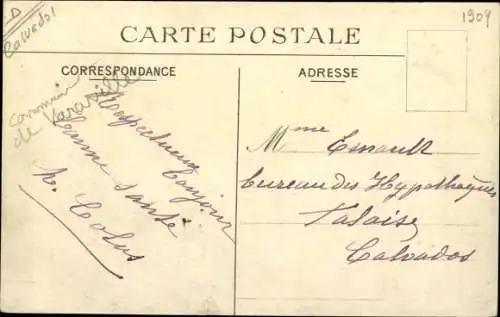 D
Calvados
1909
CARTE POSTALE
CORRESPONDANCE
ADRESSE
Commune
de Varaville
Respectueux bonjour
Bonne santé
Mme Esnault
bureau des Hypothèques
Falaise
Calvados